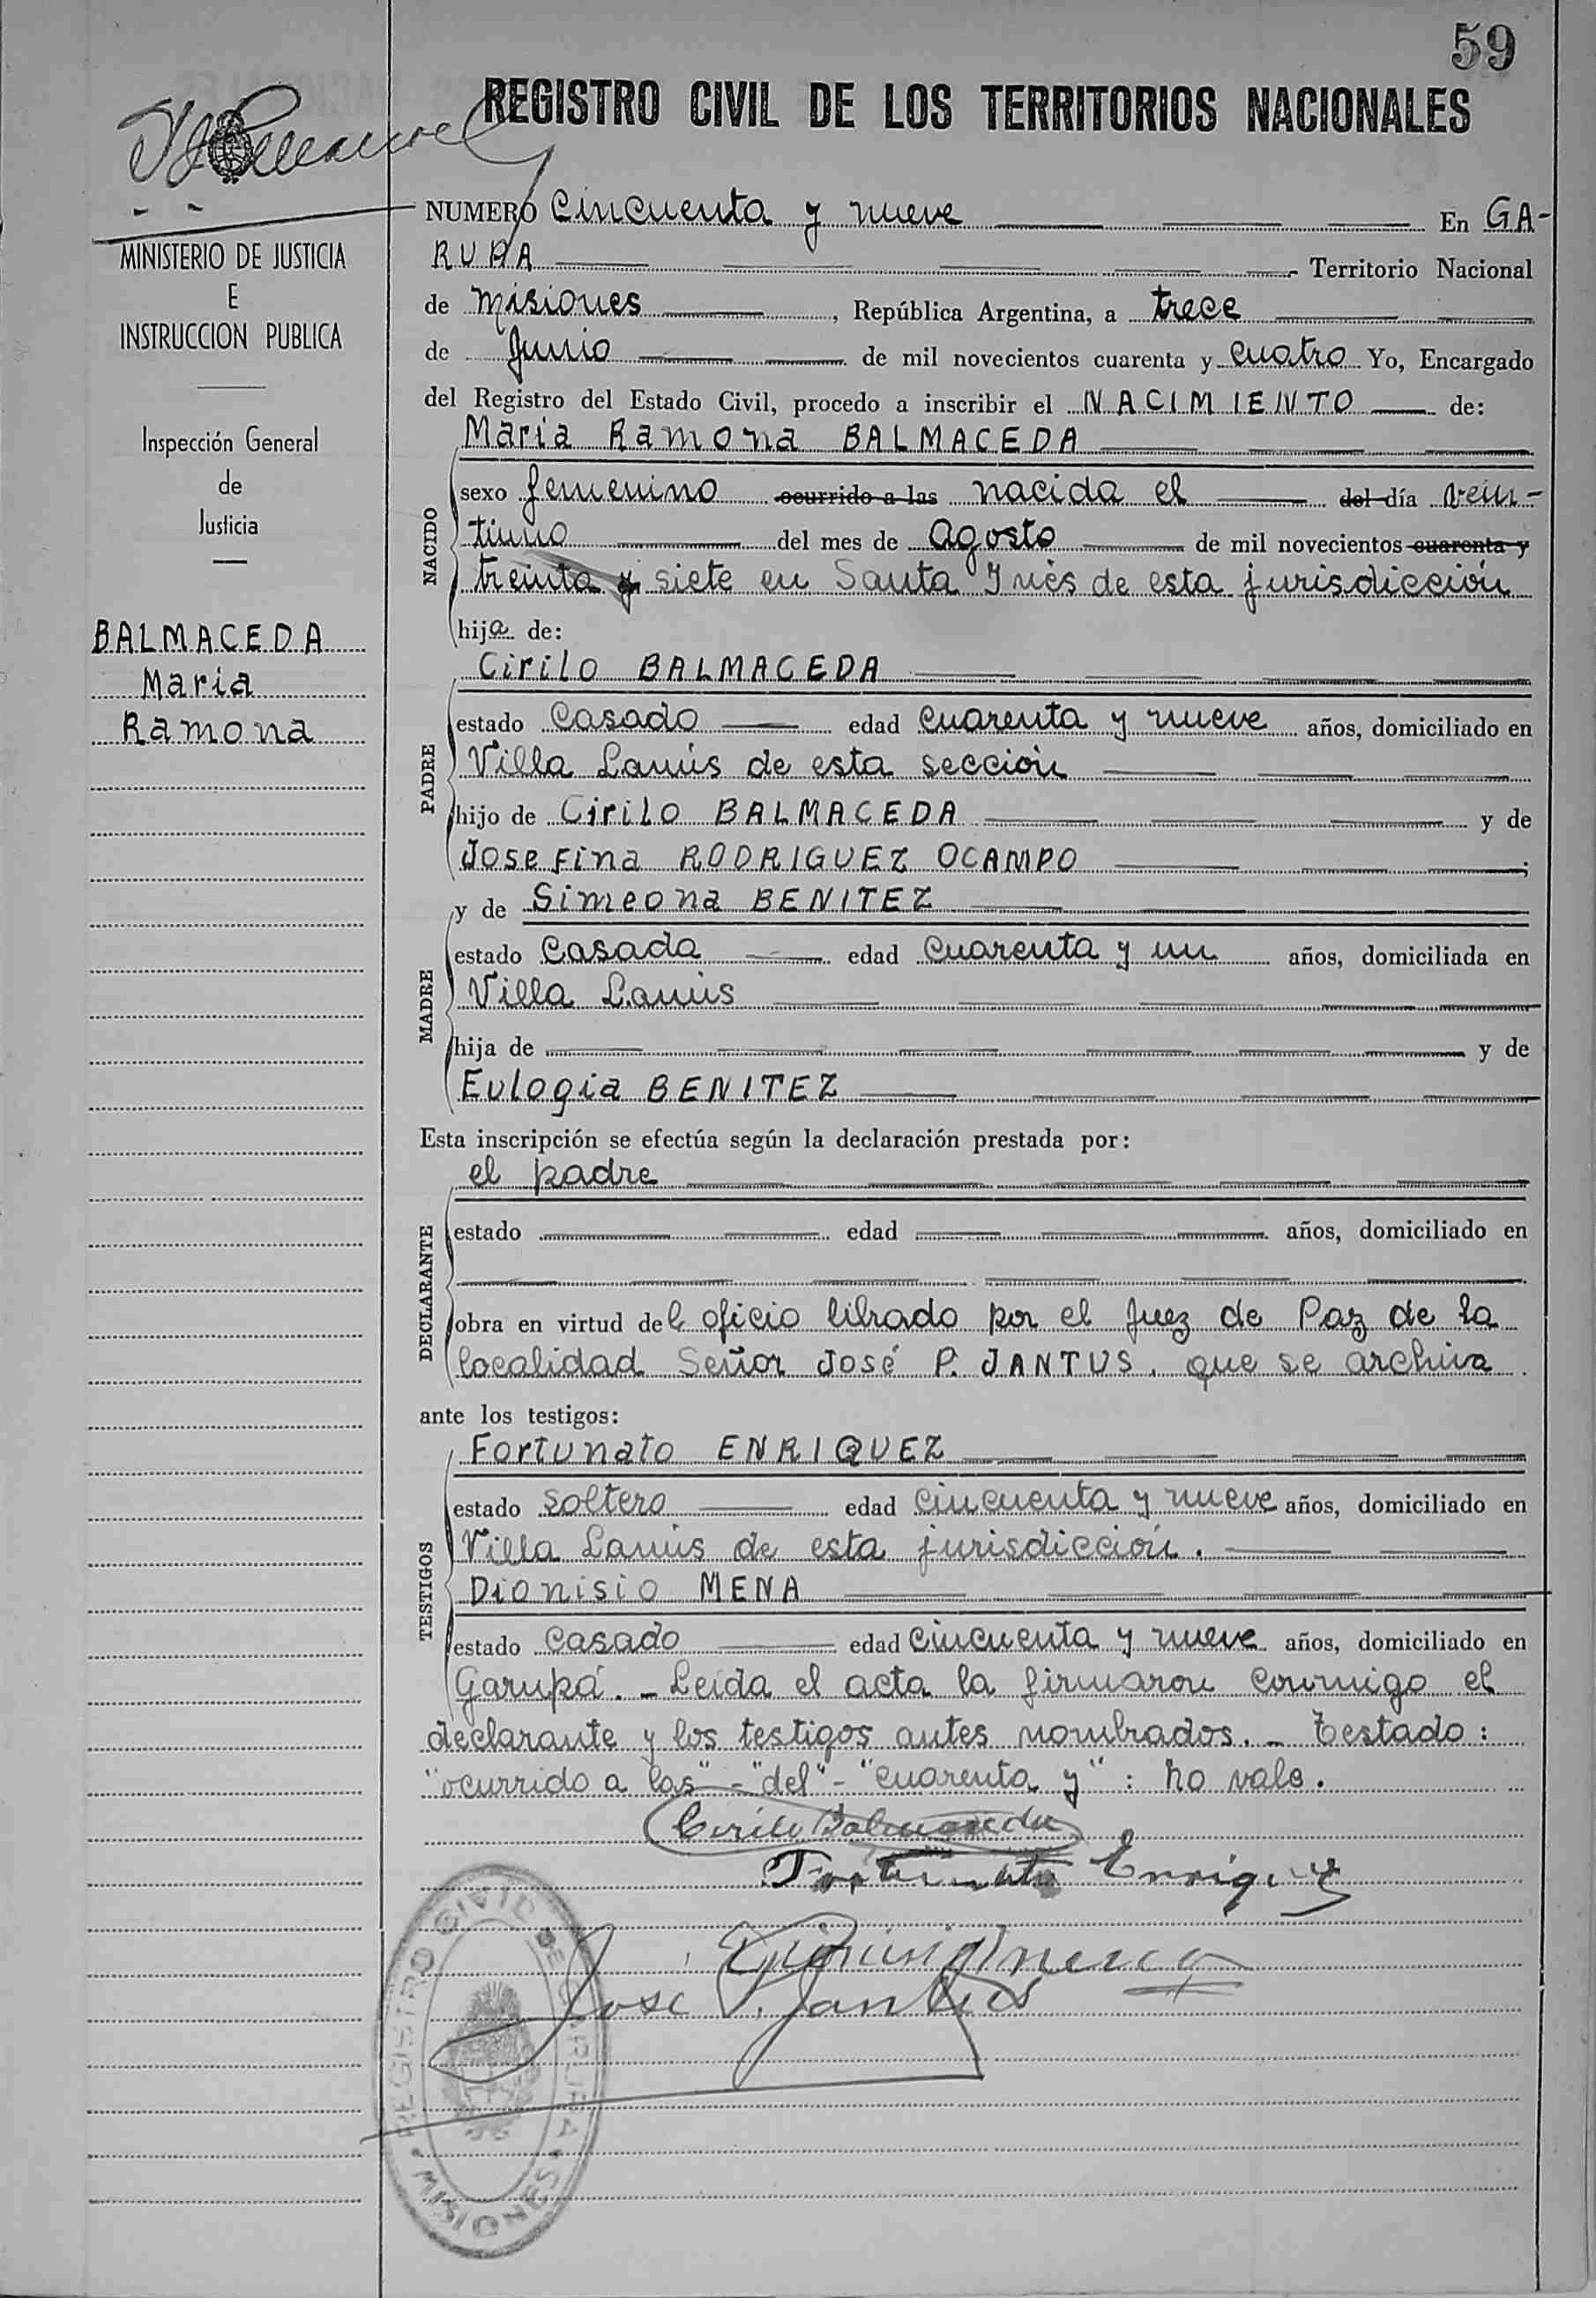 59
REGISTRO CIVIL DE LOS TERRITORIOS NACIONALES
NUMERO Cincuenta y nueve En GA-
RUPA Territorio Nacional
de Misiones, República Argentina, a trece
de Junio de mil novecientos cuarenta y cuatro Yo, Encargado
del Registro del Estado Civil, procedo a inscribir el NACIMIENTO de:
Maria Ramona BALMACEDA
NACIDO
sexo femenino ocurrido a las nacida el del día vein-
tiuno del mes de Agosto de mil novecientos cuarenta y
treinta y siete en Santa Inés de esta jurisdicción
hija de:
PADRE
Cirilo BALMACEDA
estado Casado edad cuarenta y nueve años, domiciliado en
Villa Lanús de esta sección
hijo de Cirilo BALMACEDA y de
Josefina RODRIGUEZ OCAMPO ;
MADRE
y de Simeona BENITEZ
estado Casada edad cuarenta y un años, domiciliada en
Villa Lanús
hija de y de
Eulogia BENITEZ
Esta inscripción se efectúa según la declaración prestada por:
DECLARANTE
el padre
estado edad años, domiciliado en
obra en virtud del oficio librado por el Juez de Paz de la
localidad Señor José P. JANTUS. que se archiva
ante los testigos:
TESTIGOS
Fortunato ENRIQUEZ
estado soltero edad cincuenta y nueve años, domiciliado en
Villa Lanús de esta jurisdicción.
Dionisio MENA
estado Casado edad cincuenta y nueve años, domiciliado en
Garupá. - Leída el acta la firmaron conmigo el
declarante y los testigos antes nombrados. - Testado:
"ocurrido a las" - "del" - "cuarenta y" : no vale.
Cirilo Balmaceda
Fortunato Enriquez
Dionisio Mena
José P. Jantus
REGISTRO CIVIL DE GARUPA • MISIONES •
MINISTERIO DE JUSTICIA
E
INSTRUCCION PUBLICA
Inspección General
de
Justicia
BALMACEDA
Maria
Ramona